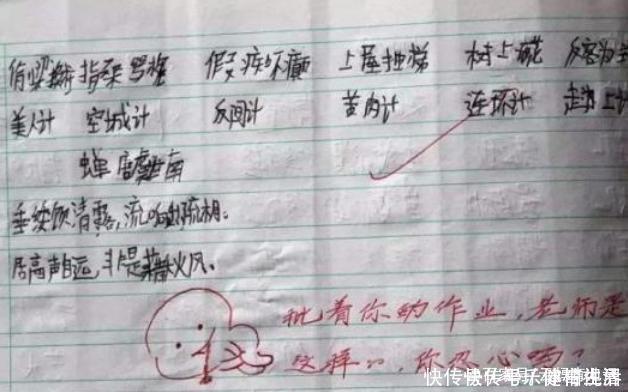 偷梁换柱 指桑骂槐 假痴不癫 上屋抽梯 树上开花 反客为主
美人计 空城计 反间计 苦肉计 连环计 走为上计
蝉 虞世南
垂绥饮清露,流响出疏桐。
居高声自远,非是藉秋风。
批着你的作业,老师是
这样的,你忍心吗?